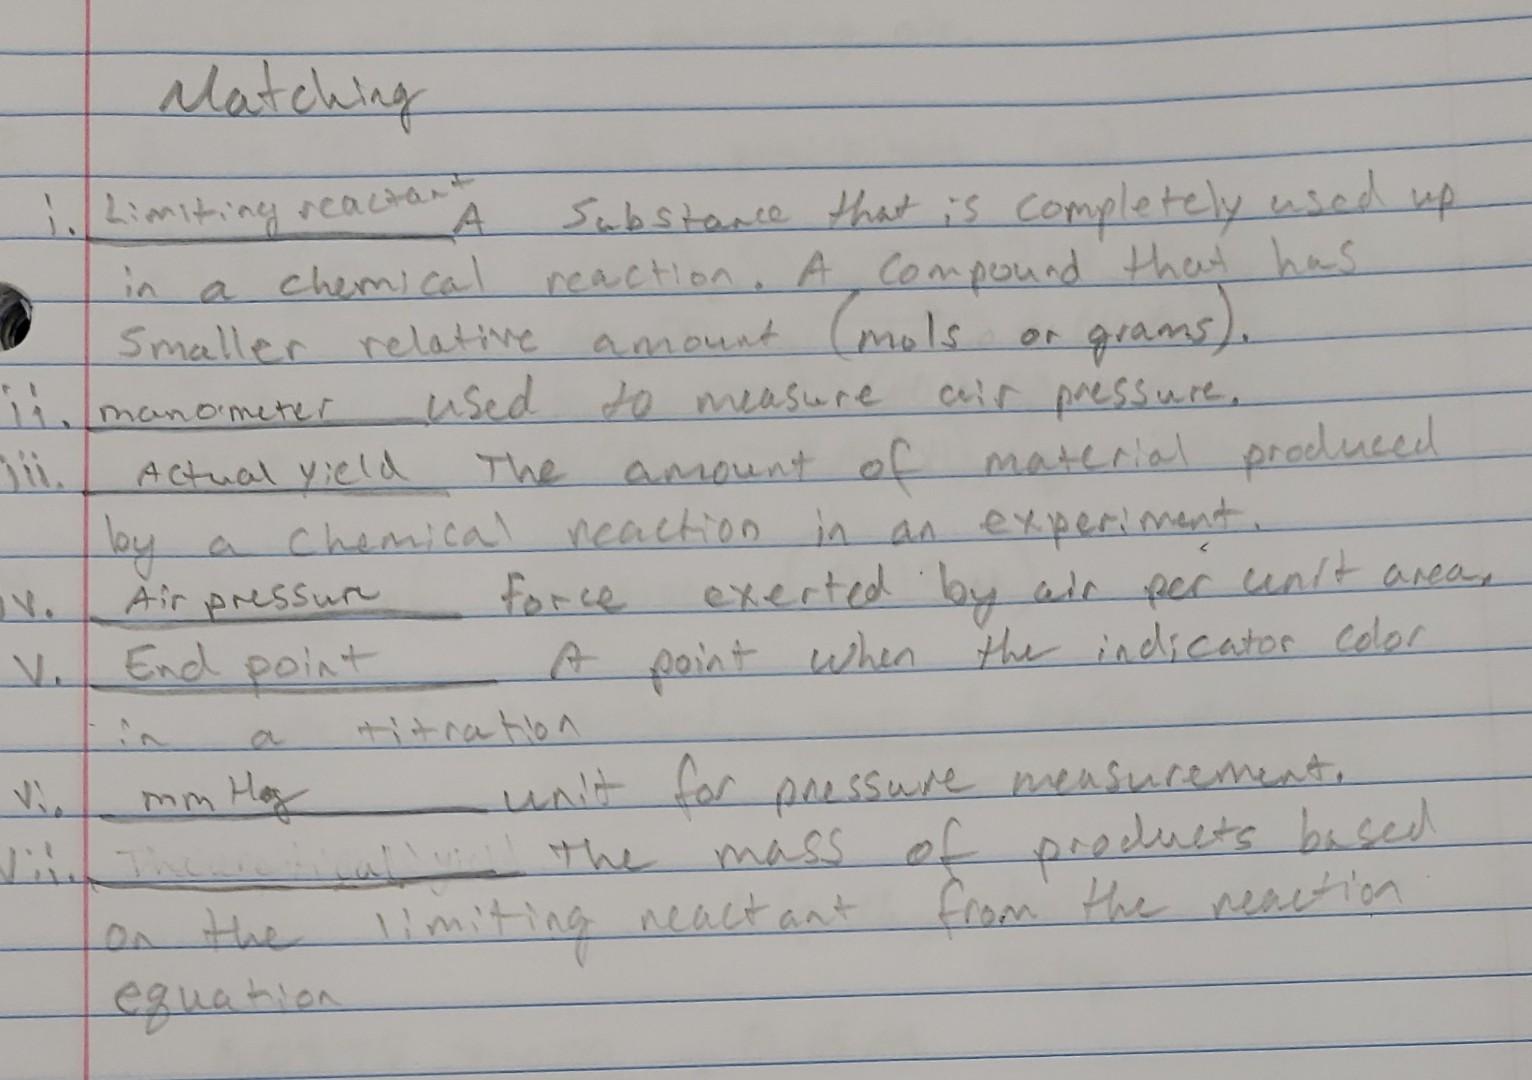 Matching
i. Limiting reactant A Substance that is completely used up
in a chemical reaction. A compound that has
smaller relative amount (mols or grams).
ii. manometer used to measure air pressure.
iii. Actual yield The amount of material produced
by a chemical reaction in an experiment.
iv. Air pressure force exerted by air per unit area,
v. End point A point when the indicator color
in a titration
vi. mm Hg unit for pressure measurement.
vii. the mass of products based
on the limiting reactant from the reaction
equation